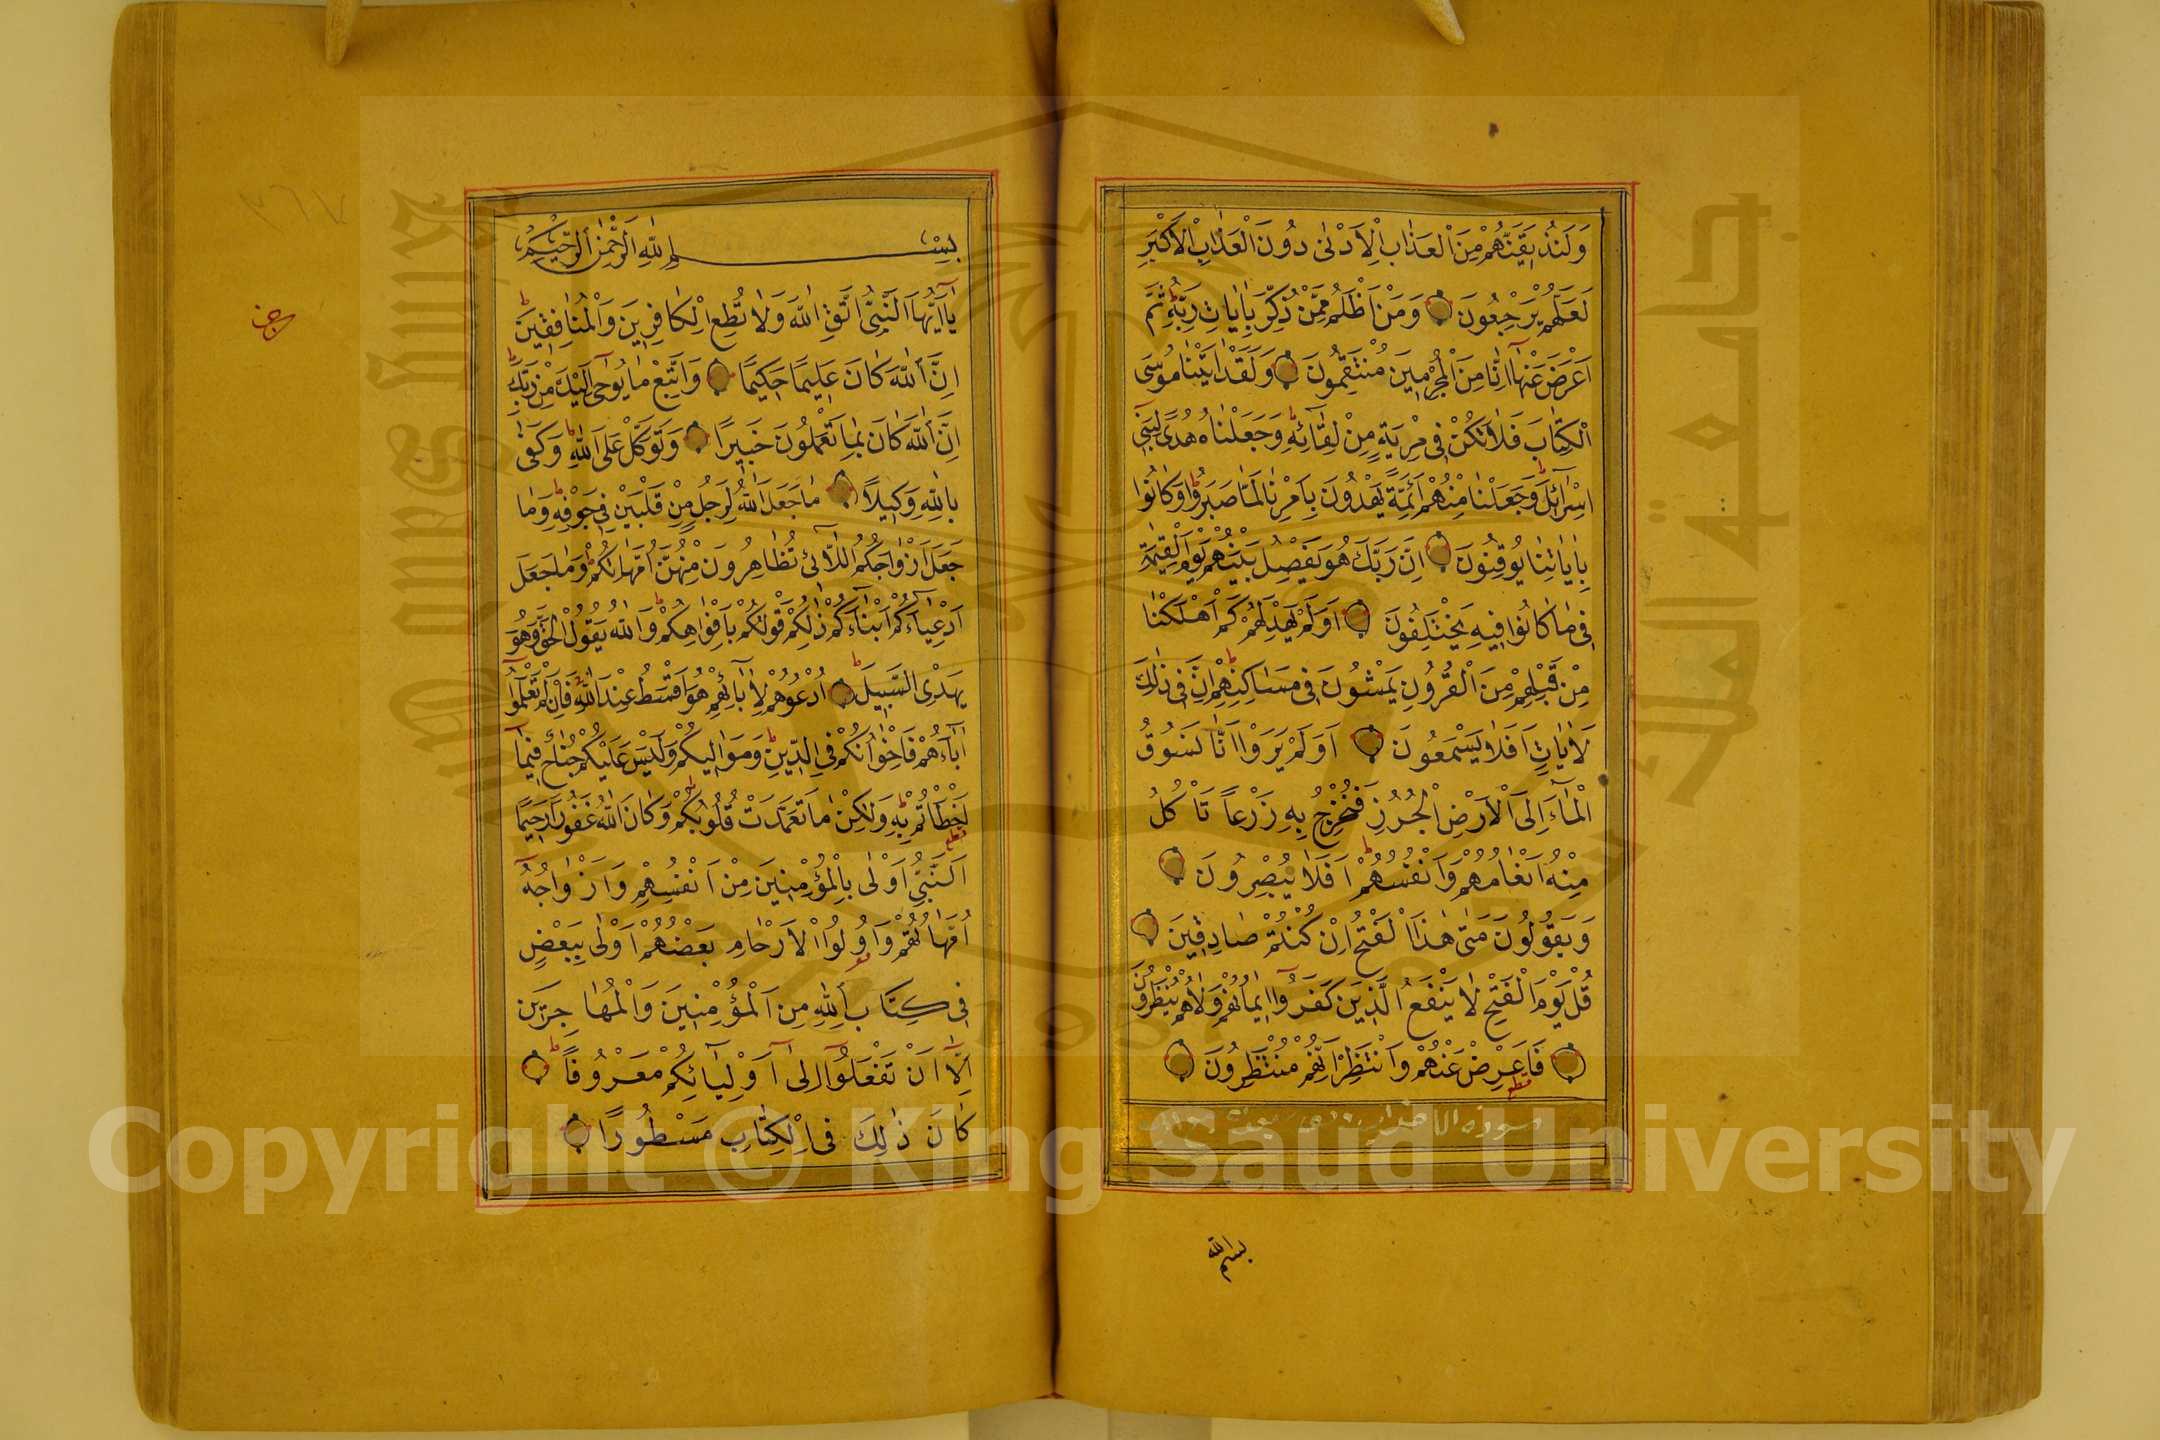 وَلَنُذِيقَنَّهُمْ مِنَ الْعَذَابِ الْاَدْنٰى دُونَ الْعَذَابِ الْاَكْبَرِ
لَعَلَّهُمْ يَرْجِعُونَ وَمَنْ اَظْلَمُ مِمَّنْ ذُكِّرَ بِاٰيَاتِ رَبِّهٖ ثُمَّ
اَعْرَضَ عَنْهَٓا اِنَّا مِنَ الْمُجْرِمِينَ مُنْتَقِمُونَ وَلَقَدْ اٰتَيْنَا مُوسَى
الْكِتَابَ فَلَا تَكُنْ فِى مِرْيَةٍ مِنْ لِقَٓائِهٖ وَجَعَلْنَاهُ هُدًى لِبَنِٓى
اِسْرَٓائِلَ وَجَعَلْنَا مِنْهُمْ اَئِمَّةً يَهْدُونَ بِاَمْرِنَا لَمَّا صَبَرُوا وَكَانُوا
بِاٰيَاتِنَا يُوقِنُونَ اِنَّ رَبَّكَ هُوَ يَفْصِلُ بَيْنَهُمْ يَوْمَ الْقِيٰمَةِ
فِى مَا كَانُوا فِيهِ يَخْتَلِفُونَ اَوَلَمْ يَهْدِ لَهُمْ كَمْ اَهْلَكْنَا
مِنْ قَبْلِهِمْ مِنَ الْقُرُونِ يَمْشُونَ فِى مَسَاكِنِهِمْ اِنَّ فِى ذٰلِكَ
لَاٰيَاتٍ اَفَلَا يَسْمَعُونَ اَوَلَمْ يَرَوْا اَنَّا نَسُوقُ
الْمَٓاءَ اِلَى الْاَرْضِ الْجُرُزِ فَنُخْرِجُ بِهِ زَرْعاً تَاْكُلُ
مِنْهُ اَنْعَامُهُمْ وَاَنْفُسُهُمْ اَفَلَا يُبْصِرُونَ
وَيَقُولُونَ مَتٰى هٰذَا الْفَتْحُ اِنْ كُنْتُمْ صَادِقِينَ
قُلْ يَوْمَ الْفَتْحِ لَا يَنْفَعُ الَّذِينَ كَفَرُٓوا اِيمَانُهُمْ وَلَا هُمْ يُنْظَرُونَ
فَاَعْرِضْ عَنْهُمْ وَانْتَظِرْ اِنَّهُمْ مُنْتَظِرُونَ
سورة الاحزاب
بسم الله
بِسْمِ اللّٰهِ الرَّحْمٰنِ الرَّحِيمِ
يَٓا اَيُّهَا النَّبِىُّ اتَّقِ اللّٰهَ وَلَا تُطِعِ الْكَافِرِينَ وَالْمُنَافِقِينَ
اِنَّ اللّٰهَ كَانَ عَلِيمًا حَكِيمًا وَاتَّبِعْ مَا يُوحٰٓى اِلَيْكَ مِنْ رَبِّكَ
اِنَّ اللّٰهَ كَانَ بِمَا تَعْمَلُونَ خَبِيرًا وَتَوَكَّلْ عَلَى اللّٰهِ وَكَفٰى
بِاللّٰهِ وَكِيلاً مَا جَعَلَ اللّٰهُ لِرَجُلٍ مِنْ قَلْبَيْنِ فِى جَوْفِهِ وَمَا
جَعَلَ اَزْوَاجَكُمُ اللَّٓائِى تُظَاهِرُونَ مِنْهُنَّ اُمَّهَاتِكُمْ وَمَا جَعَلَ
اَدْعِيَٓاءَكُمْ اَبْنَٓاءَكُمْ ذٰلِكُمْ قَوْلُكُمْ بِاَفْوَاهِكُمْ وَاللّٰهُ يَقُولُ الْحَقَّ وَهُوَ
يَهْدِى السَّبِيلَ اُدْعُوهُمْ لِاٰبَٓائِهِمْ هُوَ اَقْسَطُ عِنْدَ اللّٰهِ فَاِنْ لَمْ تَعْلَمُٓوا
اٰبَٓاءَهُمْ فَاِخْوَانُكُمْ فِى الدِّينِ وَمَوَالِيكُمْ وَلَيْسَ عَلَيْكُمْ جُنَاحٌ فِيمَٓا
اَخْطَاْتُمْ بِهِ وَلٰكِنْ مَا تَعَمَّدَتْ قُلُوبُكُمْ وَكَانَ اللّٰهُ غَفُورًا رَحِيمًا
اَلنَّبِىُّ اَوْلٰى بِالْمُؤْمِنِينَ مِنْ اَنْفُسِهِمْ وَاَزْوَاجُهُٓ
اُمَّهَاتُهُمْ وَاُولُوا الْاَرْحَامِ بَعْضُهُمْ اَوْلٰى بِبَعْضٍ
فِى كِتَابِ اللّٰهِ مِنَ الْمُؤْمِنِينَ وَالْمُهَاجِرِينَ
اِلَّٓا اَنْ تَفْعَلُٓوا اِلٰٓى اَوْلِيَٓائِكُمْ مَعْرُوفًا
كَانَ ذٰلِكَ فِى الْكِتَابِ مَسْطُورًا
Copyright © King Saud University